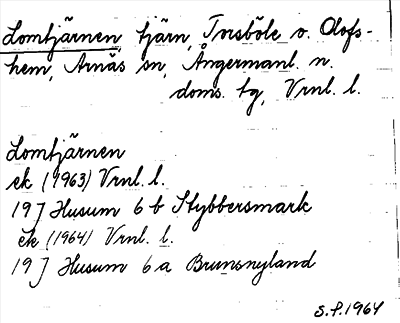 Lomtjärnen, tjärn, Torsböle o. Olofs-
hem, Arnäs sn, Ångermanl. n.
doms. tg, Vrnl. l.
Lomtjärnen
ek (1963) Vrnl. l.
19 J Husum 6 b Stybbersmark
ek (1964) Vrnl. l.
19 J Husum 6 a Brunsnyland
S.P. 1964